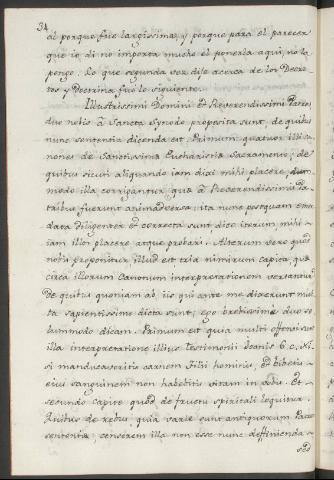 34
al porque fue larguissima, y porque para el parecer
que io di no importa mucho el ponerla aqui, no la
pongo. Lo que segunda vez dije acerca de los Decre-
tos y Doctrina fue lo siguiente.
Illustrissimi Domini et Reverendissimi Patres
duo nobis a Sancta Synodo proposita sunt, de quibus
nunc sententia dicenda est. Primum quatuor illi ca-
nones de Sanctissimo Eucharistiæ Sacramento; de
quibus sicuti aliquando iam dixi mihi placere, dum-
modo illa corrigantur, quæ a Reverendissimis Pa-
tribus fuerunt animadversa, ita nunc postquam emen-
data diligenter et correcta sunt dico iterum, mihi
iam illos placere atque probari. Alterum vero quod
nobis proponitur illud est tria nimirum capita, quæ
circa illorum Canonum interpretationem versantur
De quibus quoniam ab iis qui ante me dixerunt mul-
ta sapientissime dicta sunt, ego brevissime duo so-
lummodo dicam. Primum est quia multi offensi sunt
illa interpretatione illius testimonii Joanis 6. c. Ni-
si manducaveritis carnem Filii hominis, et biberitis
eius sanguinem non habebitis vitam in vobis. Et
secundo capite quod de fructu spiritali loquitur.
Quibus de rebus quia variæ sunt antiquorum Patrum
sententiæ, censerem illa non esse nunc deffinienda,
sed